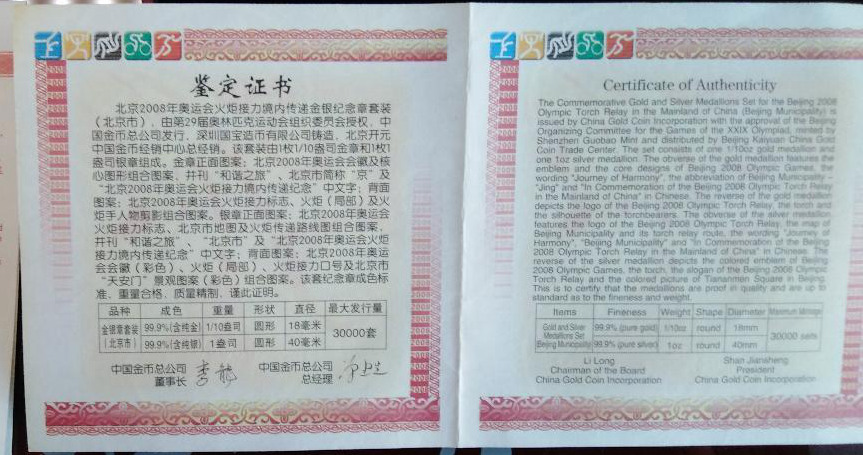 鉴定证书
北京2008年奥运会火炬接力境内传递金银纪念章套装
（北京市），由第29届奥林匹克运动会组织委员会授权，中
国金币总公司发行，深圳国宝造币有限公司铸造，北京开元
中国金币经销中心总经销。该套装由1枚1/10盎司金章和1枚1
盎司银章组成。金章正面图案：北京2008年奥运会会徽及核
心图形组合图案，并刊“和谐之旅”、北京市简称“京”及
“北京2008年奥运会火炬接力境内传递纪念”中文字；背面
图案：北京2008年奥运会火炬接力标志、火炬（局部）及火
炬手人物剪影组合图案。银章正面图案：北京2008年奥运会
火炬接力标志、北京市地图及火炬传递路线图组合图案，
并刊“和谐之旅”、“北京市”及“北京2008年奥运会火炬
接力境内传递纪念”中文字；背面图案：北京2008年奥运
会会徽（彩色）、火炬（局部）、火炬接力口号及北京市
“天安门”景观图案（彩色）组合图案。该套纪念章成色标
准、重量合格、质量精制，谨此证明。
品种 成色 重量 形状 直径 最大发行量
金银章套装 99.9%(含纯金) 1/10盎司 圆形 18毫米 30000套
（北京市） 99.9%(含纯银) 1盎司 圆形 40毫米
中国金币总公司 中国金币总公司
董事长 李龙 总经理
Certificate of Authenticity
The Commemorative Gold and Silver Medallions Set for the Beijing 2008
Olympic Torch Relay in the Mainland of China (Beijing Municipality) is
issued by China Gold Coin Incorporation with the approval of the Beijing
Organizing Committee for the Games of the XXIX Olympiad, minted by
Shenzhen Guobao Mint and distributed by Beijing Kaiyuan China Gold
Coin Trade Center. The set consists of one 1/10oz gold medallion and
one 1oz silver medallion. The obverse of the gold medallion features the
emblem and the core designs of Beijing 2008 Olympic Games, the
wording "Journey of Harmony", the abbreviation of Beijing Municipality -
"Jing" and "In Commemoration of the Beijing 2008 Olympic Torch Relay
in the Mainland of China" in Chinese. The reverse of the gold medallion
depicts the logo of the Beijing 2008 Olympic Torch Relay, the torch and
the silhouette of the torchbearers. The obverse of the silver medallion
features the logo of the Beijing 2008 Olympic Torch Relay, the map of
Beijing Municipality and its torch relay route, the wording "Journey of
Harmony", "Beijing Municipality" and "In Commemoration of the Beijing
2008 Olympic Torch Relay in the Mainland of China" in Chinese. The
reverse of the silver medallion depicts the colored emblem of Beijing
2008 Olympic Games, the torch, the slogan of the Beijing 2008 Olympic
Torch Relay and the colored picture of Tiananmen Square in Beijing.
This is to certify that the medallions are proof in quality and are up to
standard as to the fineness and weight.
Items Fineness Weight Shape Diameter Maximum Mintage
Gold and Silver 99.9% (pure gold) 1/10oz round 18mm 30000 sets
Medallions Set
Beijing Municipality 99.9% (pure silver) 1oz round 40mm
Li Long Shan Jiansheng
Chairman of the Board President
China Gold Coin Incorporation China Gold Coin Incorporation